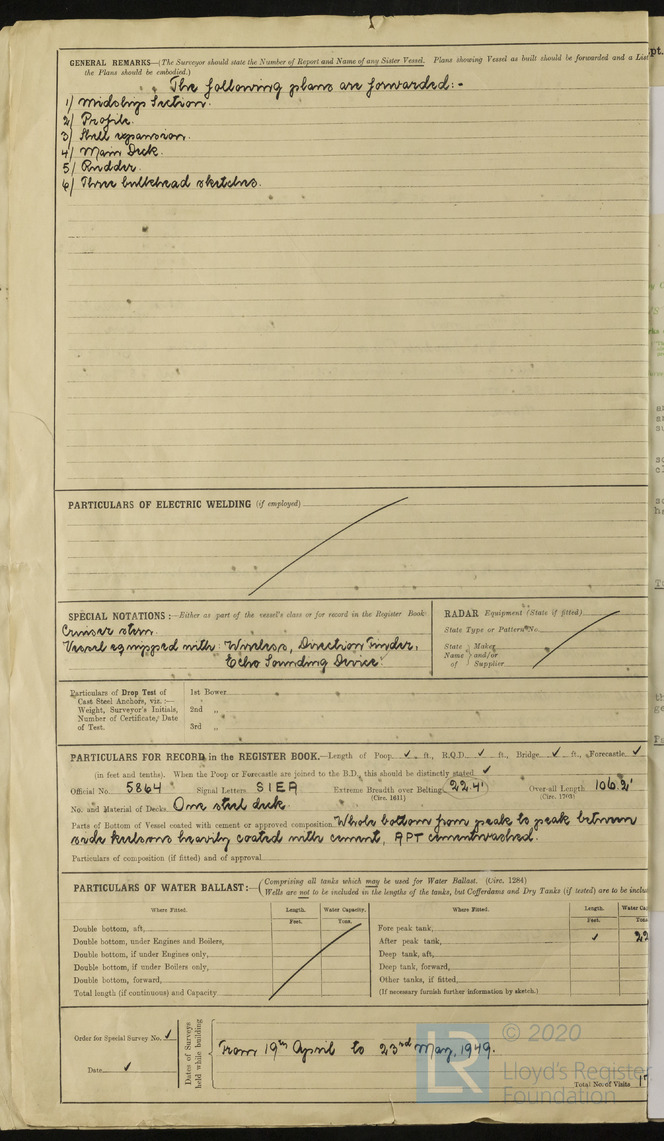 GENERAL REMARKS—(The Surveyor should state the Number of Report and Name of any Sister Vessel. Plans showing Vessel as built should be forwarded and a List
the Plans should be embodied.)
The following plans are forwarded:-
1/ Midships Section.
2/ Profile.
3/ Shell expansion.
4/ Main Deck.
5/ Rudder.
6/ Three bulkhead sketches.
PARTICULARS OF ELECTRIC WELDING (if employed)
SPECIAL NOTATIONS:—Either as part of the vessel's class or for record in the Register Book
Cruiser stern.
Vessel equipped with: Wireless, Direction Finder,
Echo Sounding Device.
RADAR Equipment (State if fitted)
State Type or Pattern No.
State Name of Maker and/or Supplier
Particulars of Drop Test of
Cast Steel Anchors, viz.:—
Weight, Surveyor's Initials,
Number of Certificate, Date
of Test.
1st Bower
2nd „
3rd „
PARTICULARS FOR RECORD in the REGISTER BOOK.—Length of Poop ✓ ft., R.Q.D. ✓ ft., Bridge ✓ ft., Forecastle ✓
(in feet and tenths). When the Poop or Forecastle are joined to the B.D. this should be distinctly stated ✓
Official No. 5864 Signal Letters SIEA Extreme Breadth over Belting 22.4' Over-all Length 106.2'
(Circ. 1611) (Circ. 1703)
No. and Material of Decks One steel deck
Parts of Bottom of Vessel coated with cement or approved composition Whole bottom from peak to peak between
side keelsons heavily coated with cement, APT cementwashed.
Particulars of composition (if fitted) and of approval
PARTICULARS OF WATER BALLAST:—(Comprising all tanks which may be used for Water Ballast. (Circ. 1284)
Wells are not to be included in the lengths of the tanks, but Cofferdams and Dry Tanks (if tested) are to be inclu
Where Fitted. Length. Water Capacity. Where Fitted. Length. Water Ca
Feet. Tons. Feet. Tons
Double bottom, aft,
Double bottom, under Engines and Boilers,
Double bottom, if under Engines only,
Double bottom, if under Boilers only,
Double bottom, forward,
Total length (if continuous) and Capacity
Fore peak tank,
After peak tank, ✓ 22
Deep tank, aft,
Deep tank, forward,
Other tanks, if fitted,
(If necessary furnish further information by sketch.)
Order for Special Survey No. ✓
Date ✓
Dates of Surveys
held while building
From 19th April to 23rd May, 1949.
Total No. of Visits 17
LR
© 2020
Lloyd's Register
Foundation